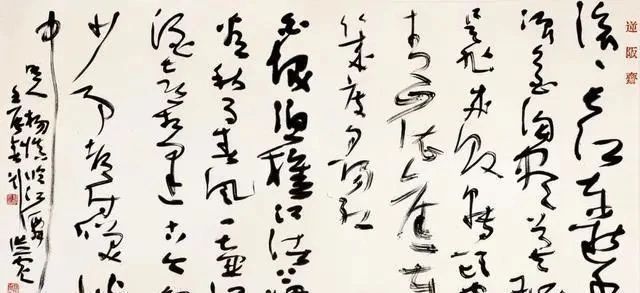 逆阪齋
滚〻长江东逝
浪花淘尽英
是非成败转头
青山依旧在
几度夕阳红
白发渔樵江渚上
惯看秋月春风一壶
浊酒喜相逢古今多
少事都付笑谈
中
杨慎临江仙